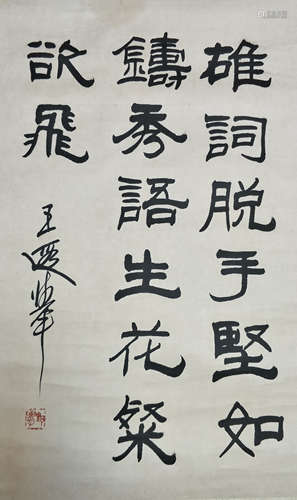 雄詞脱手堅如
鑄秀語生花粲
欲飛
王遐舉